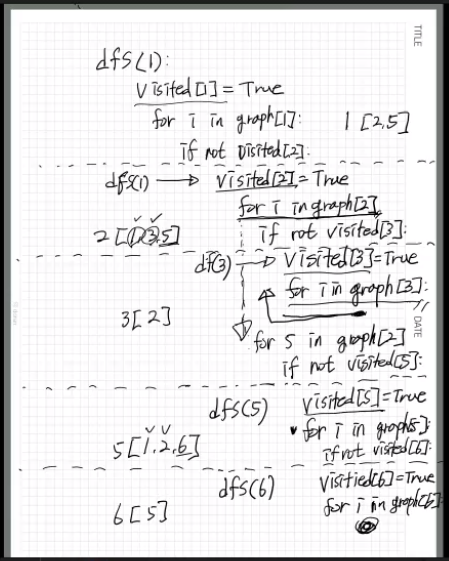 TITLE
dfs(1):
visited[1] = True
for i in graph[1]:
1 [2,5]
if not visited[2]:
dfs(1) → visited[2] = True
for i in graph[2]
2 [1,3,5]
if not visited[3]:
df(3) → visited[3] = True
for i in graph[3]:
3 [2]
DATE
for 5 in graph[2]
if not visited[5]:
dfs(5) visited[5] = True
for i in graph[5]:
5 [1,2,6]
if not visited[6]:
dfs(6) visitied[6] = True
for i in graph[6]:
6 [5]